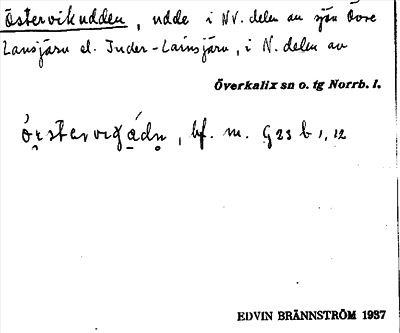 Östervikudden, udde i NV. delen av sjön Övre
Lansjärv el. Inder-Lainsjärv, i N. delen av
Överkalix sn o. tg Norrb. l.
bf. m. G 23 b 1, 12
EDVIN BRÄNNSTRÖM 1937